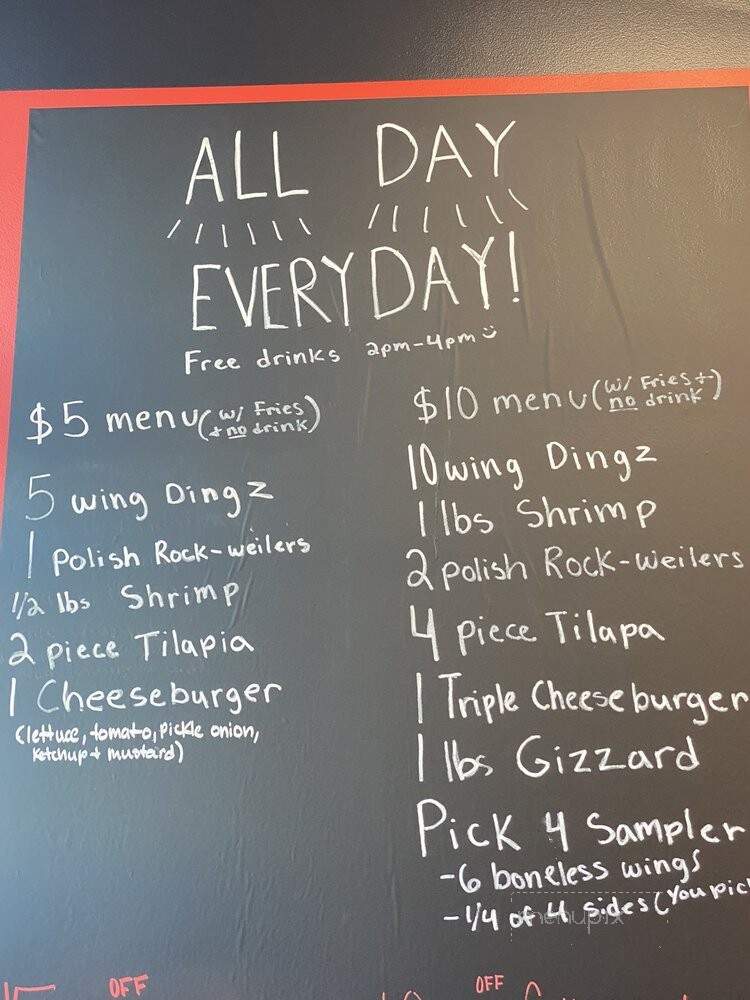 ALL DAY
EVERYDAY!
Free drinks 2pm-4pm
$5 menu (w/ Fries
+ no drink)
5 wing Dingz
1 Polish Rock-weilers
1/2 lbs Shrimp
2 piece Tilapia
1 Cheeseburger
(lettuce, tomato, pickle onion,
ketchup + mustard)
$10 menu (w/ Fries +
no drink)
10 wing Dingz
1 lbs Shrimp
2 polish Rock-weilers
4 piece Tilapa
1 Triple Cheeseburger
1 lbs Gizzard
Pick 4 Sampler
-6 boneless wings
-1/4 of 4 sides (you pic
menupix
OFF
OFF